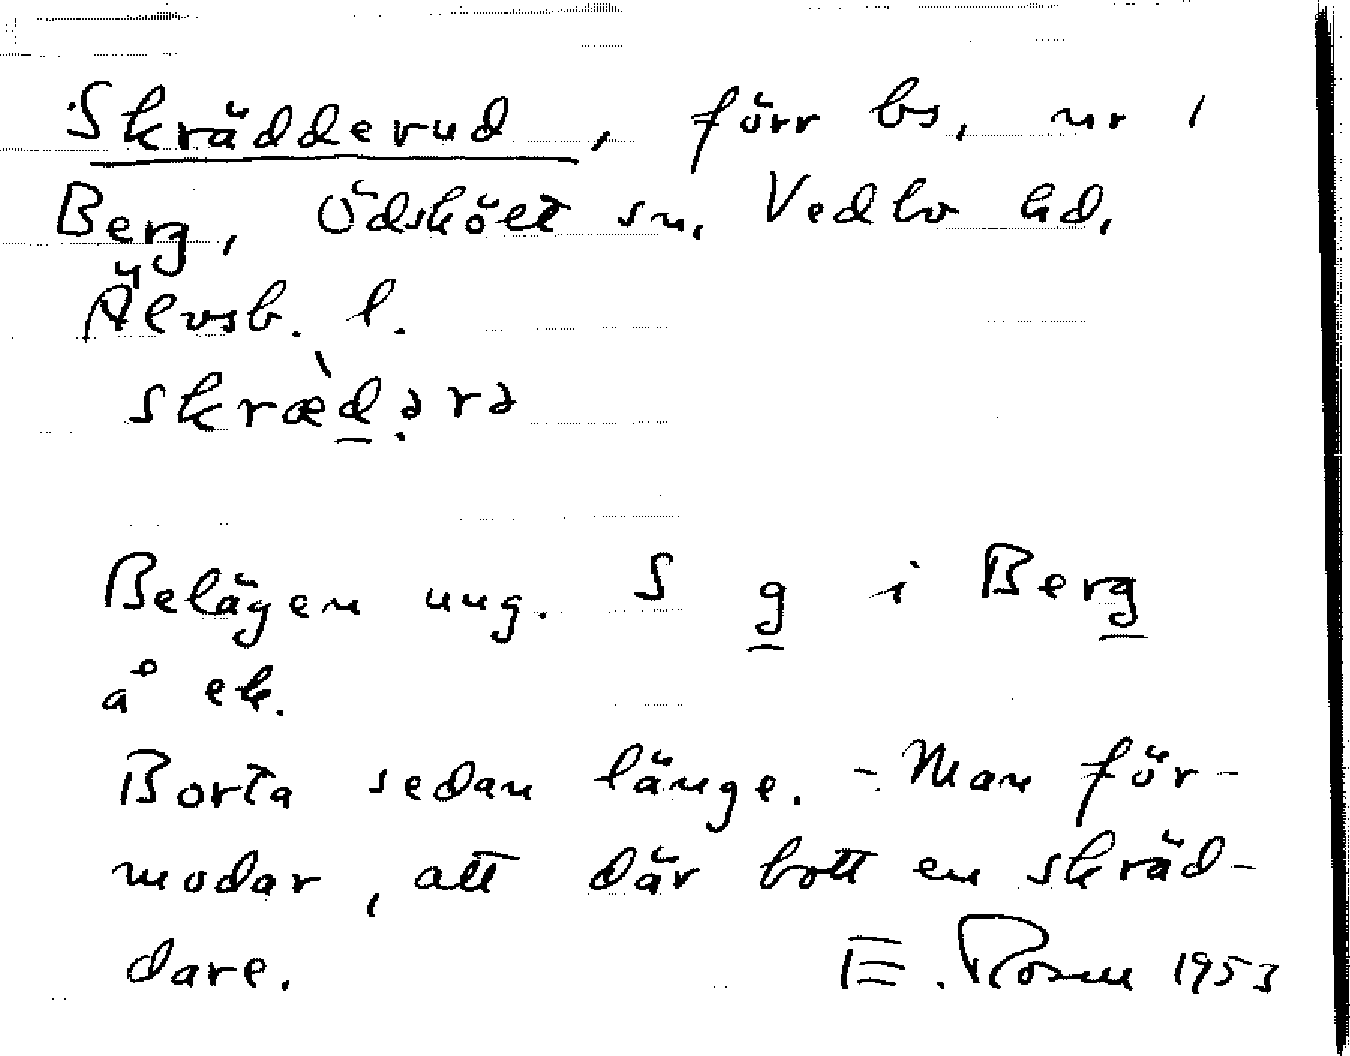 Skrädderud, förr bs, nr 1
Berg, Ödskölt sn, Vedbo hd,
Älvsb. l.
skræ̀dərə
Belägen ung. S g i Berg
å ek.
Borta sedan länge. - Man för-
modar, att där bott en skräd-
dare. E. Rosell 1953